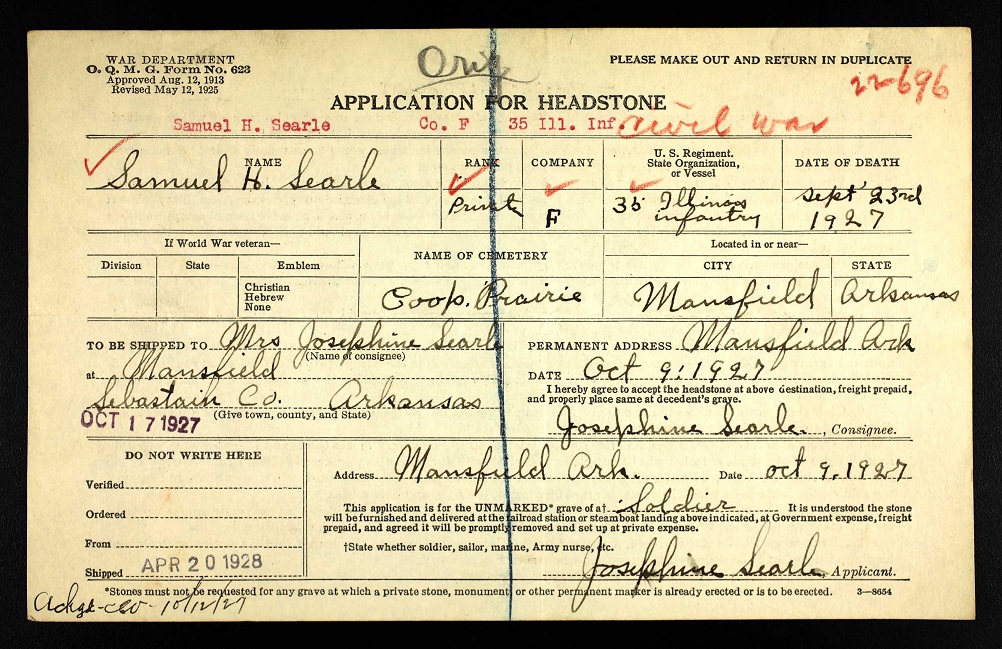 WAR DEPARTMENT
O. Q. M. G. Form No. 623
Approved Aug. 12, 1913
Revised May 12, 1925
Orig
PLEASE MAKE OUT AND RETURN IN DUPLICATE
22-696
APPLICATION FOR HEADSTONE
Samuel H. Searle Co. F 35 Ill. Inf. Civil War
NAME
Samuel H. Searle
RANK
Privat
COMPANY
F
U. S. Regiment.
State Organization,
or Vessel
35 Illinois
infantry
DATE OF DEATH
Sept 23rd
1927
If World War veteran—
Division State Emblem
Christian
Hebrew
None
NAME OF CEMETERY
Coop. Prairie
Located in or near—
CITY STATE
Mansfield Arkansas
TO BE SHIPPED TO Mrs Josephine Searle
(Name of consignee)
at Mansfield
Sebastain Co. Arkansas
(Give town, county, and State)
OCT 17 1927
PERMANENT ADDRESS Mansfield Ark
DATE Oct 9: 1927
I hereby agree to accept the headstone at above destination, freight prepaid,
and properly place same at decedent's grave.
Josephine Searle. , Consignee.
DO NOT WRITE HERE
Verified
Ordered
From
Shipped APR 20 1928
Address Mansfield Ark. Date oct 9, 1927
This application is for the UNMARKED* grave of a† Soldier It is understood the stone
will be furnished and delivered at the railroad station or steamboat landing above indicated, at Government expense, freight
prepaid, and agreed it will be promptly removed and set up at private expense.
†State whether soldier, sailor, marine, Army nurse, etc.
Josephine Searle, Applicant.
*Stones must not be requested for any grave at which a private stone, monument or other permanent marker is already erected or is to be erected. 3—8654
10/12/27